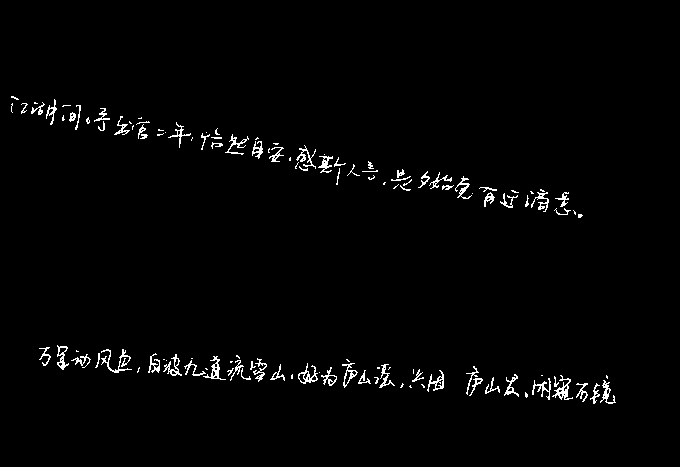 江湖间。予出官二年，恬然自安，感斯人言，是夕始觉有迁谪意。
万里动风色，白波九道流雪山。好为庐山谣，兴因 庐山发。闲窥石镜